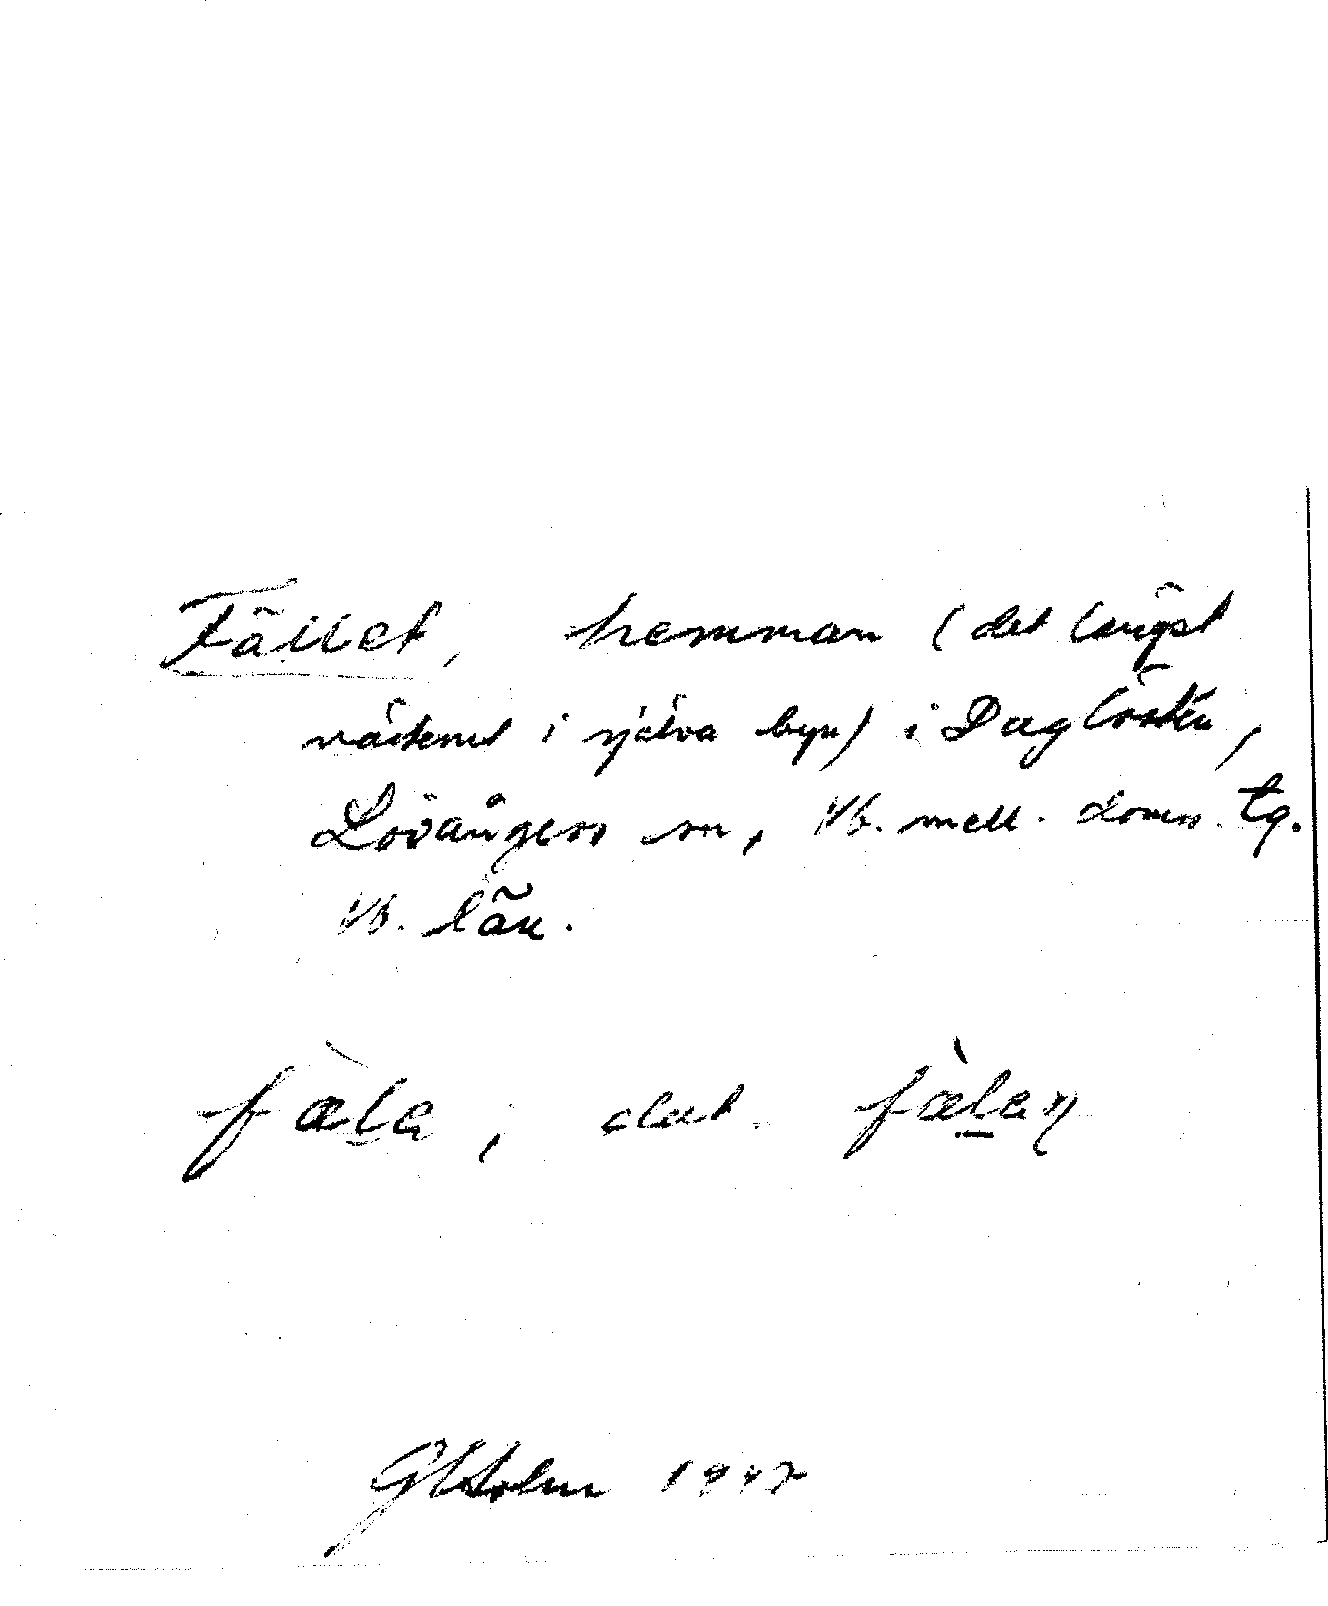 Fället, hemman (det längst
västerut i själva byn) i Daglösten,
Lövångers sn, Vb. mell. doms. tg.
Vb. län.
fæ̀la, dat. fæ̀lan
Holm 1947